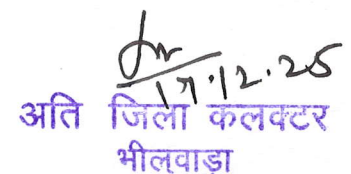 17.12.25
अति जिला कलक्टर
भीलवाड़ा